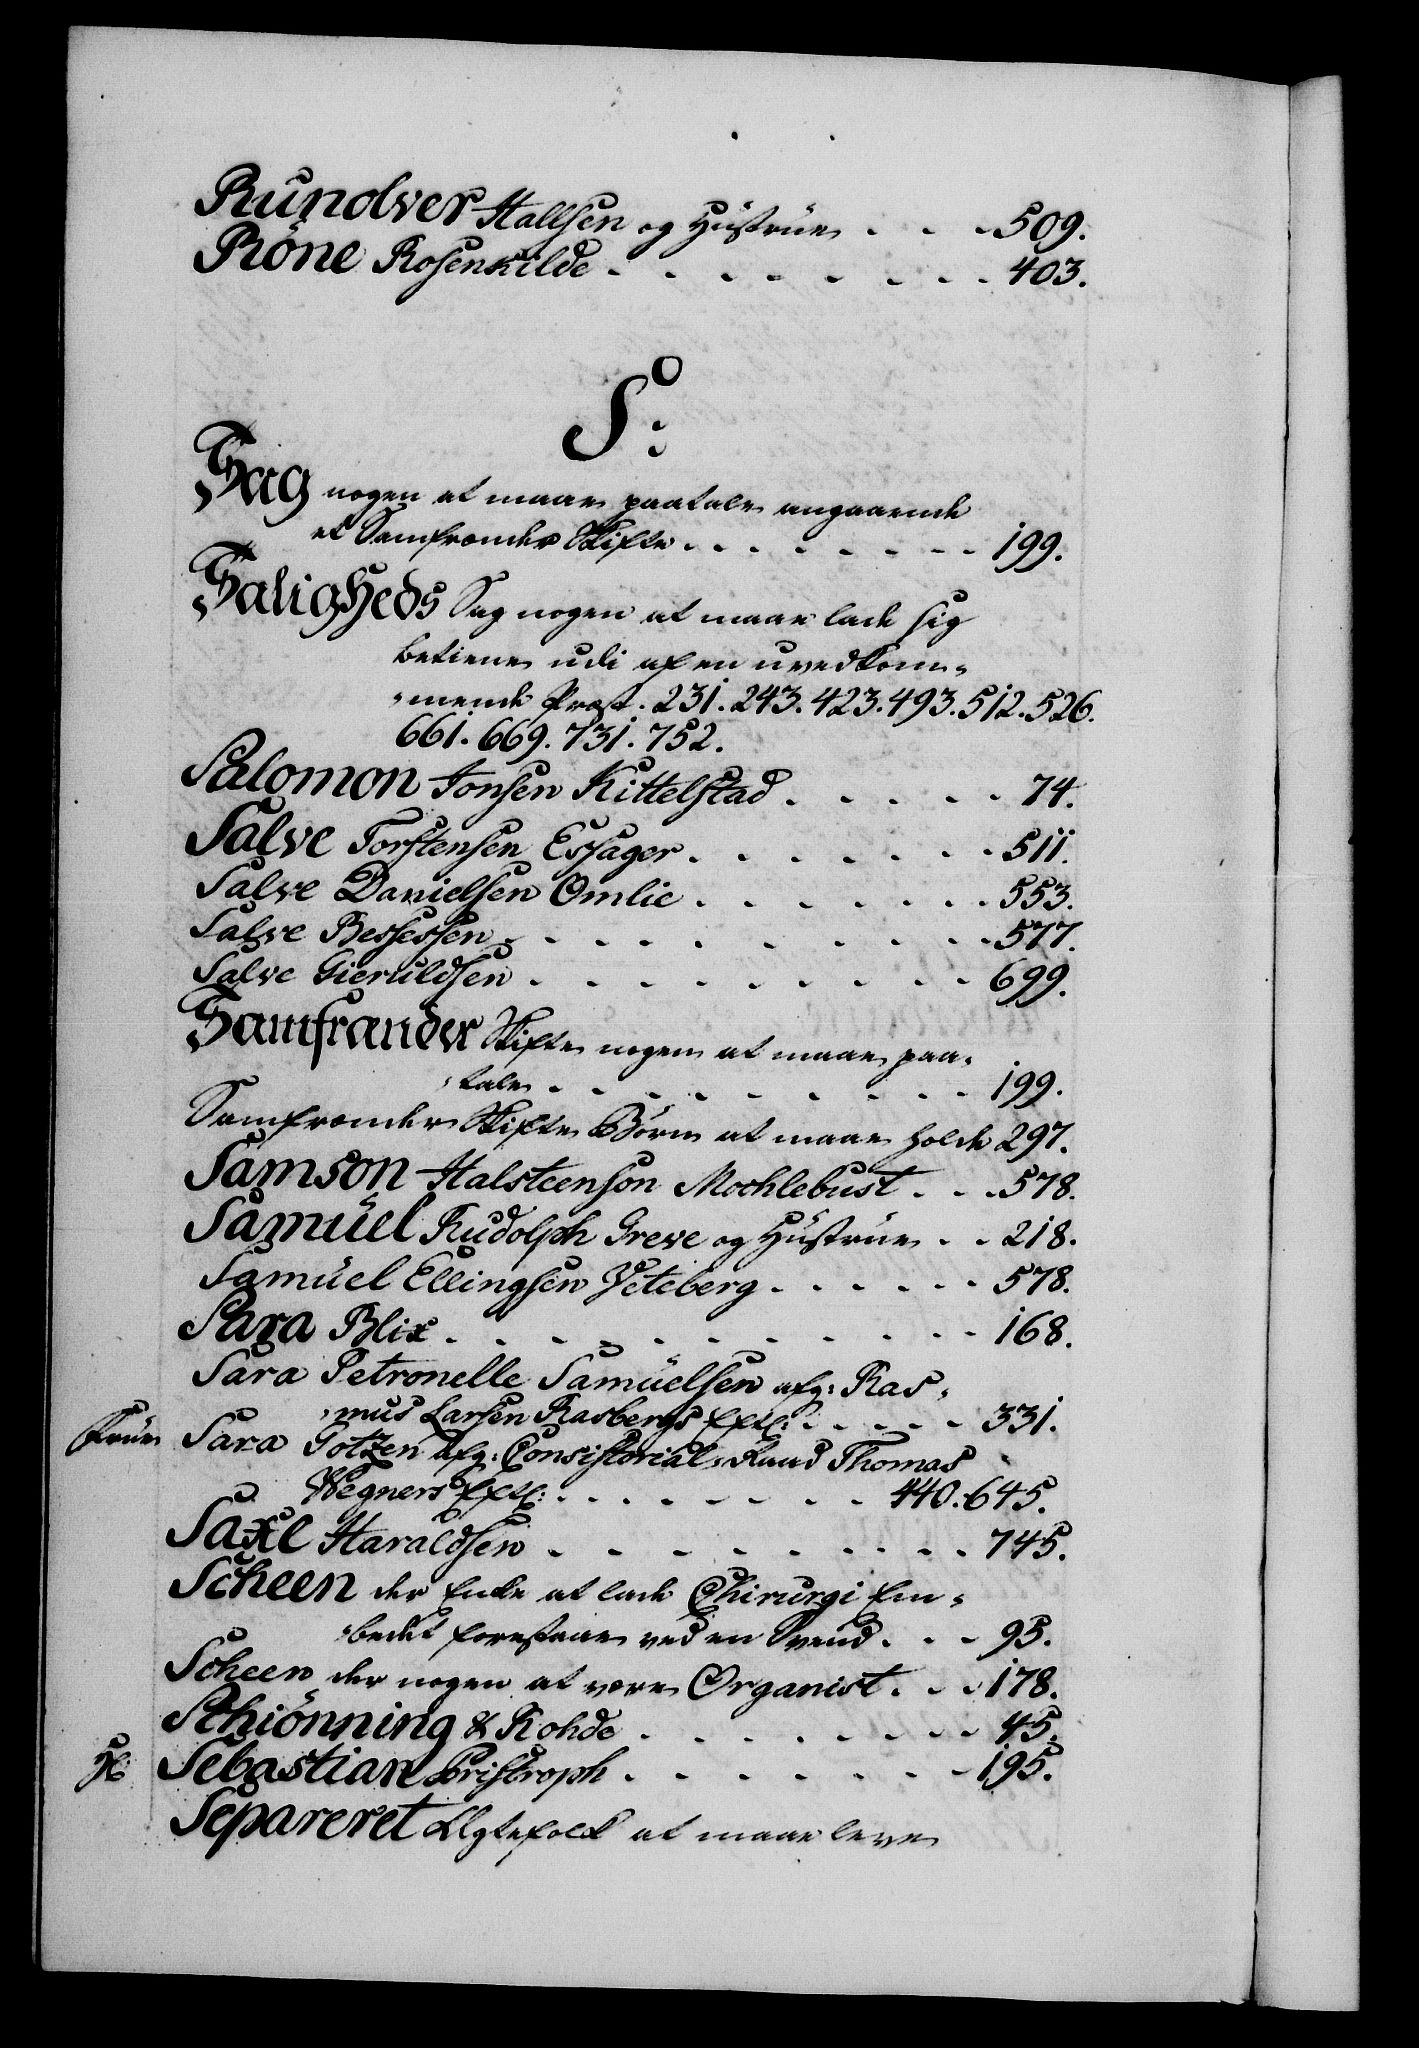 Rundver Hallsen og Hüstrüe . . . 509.
Röne Rosenkilde . . . . . . . . 403.
S:
Sag nogen at maae paatale angaaende
et Samfrænder Skifte . . . . . . . . 199.
SaligHeds Sag nogen at maae lade sig
betiene udi af en uvedkom-
-mende Præst. 231. 243. 423. 493. 512. 526.
661. 669. 731. 752.
Salomon Jonsen Kittelstad . . . . . 74.
Salve Torstensen Essager . . . . . . . 511.
Salve Danielsen Omlie . . . . . . . 553.
Salve Bessessen . . . . . . . . . . 577.
Salve Gieruldsen . . . . . . . . . 699.
Samfrænder Skifte nogen at maae paa-
-tale . . . . . . . . . 199.
Samfrænder Skifte Børn at maae holde 297.
Samson Halsteenson Mochlebust . . . 578.
Samüel Rudolph Greve og Hüstrüe . . 218.
Samüel Ellingsen Veteberg . . . . . . 578.
Sara Blix . . . . . . . . . . 168.
Sara Petronelle Samüelsen afg: Ras-
-mus Larsen Rasbergs Eftl: . . . . . . 331.
Frue Sara Gotzen afg: Consistorial-Raad Thomas
Wegners Eftl: . . . . . . . . 440. 645.
Saxe Haraldsen . . . . . . . . . 745.
Scheen der Enke at lade Chirurgi Em-
-bedet forestaae ved en Svend . . . 95.
Scheen der nogen at være Organist . . . 178.
Schiönning & Rohde . . . . . . . . 45.
Hr: Sebastian Pristroph . . . . . . . 195.
Separeret Ægtefolk at maae leve